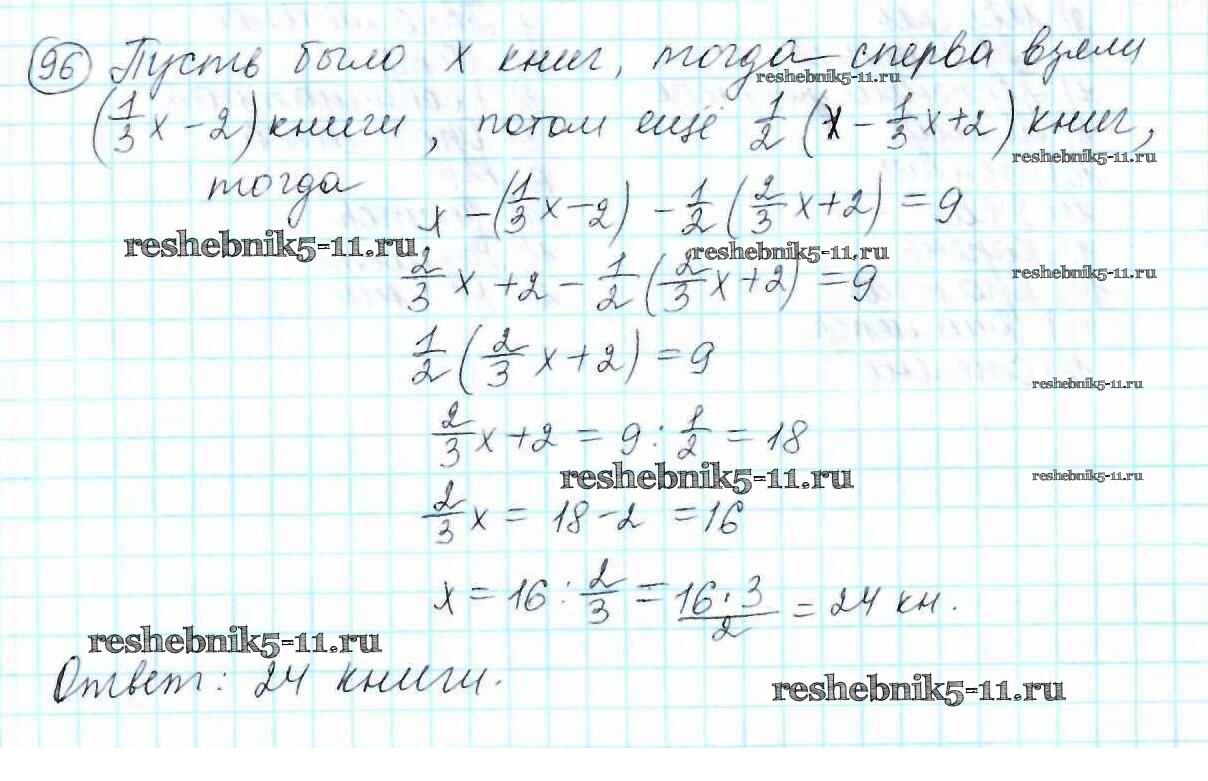 96 Пусть было x книг, тогда сперва взяли
reshebnik5-11.ru
(1/3 x - 2) книги, потом ещё 1/2 (x - 1/3 x + 2) книг,
reshebnik5-11.ru
тогда
x - (1/3 x - 2) - 1/2 (2/3 x + 2) = 9
reshebnik5-11.ru reshebnik5-11.ru
2/3 x + 2 - 1/2 (2/3 x + 2) = 9
reshebnik5-11.ru
1/2 (2/3 x + 2) = 9
reshebnik5-11.ru
2/3 x + 2 = 9 : 1/2 = 18
reshebnik5-11.ru reshebnik5-11.ru
2/3 x = 18 - 2 = 16
x = 16 : 2/3 = 16·3/2 = 24 кн.
reshebnik5-11.ru
Ответ: 24 книги.
reshebnik5-11.ru